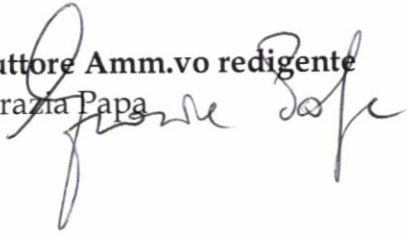 uttore Amm.vo redigente
razia Papa